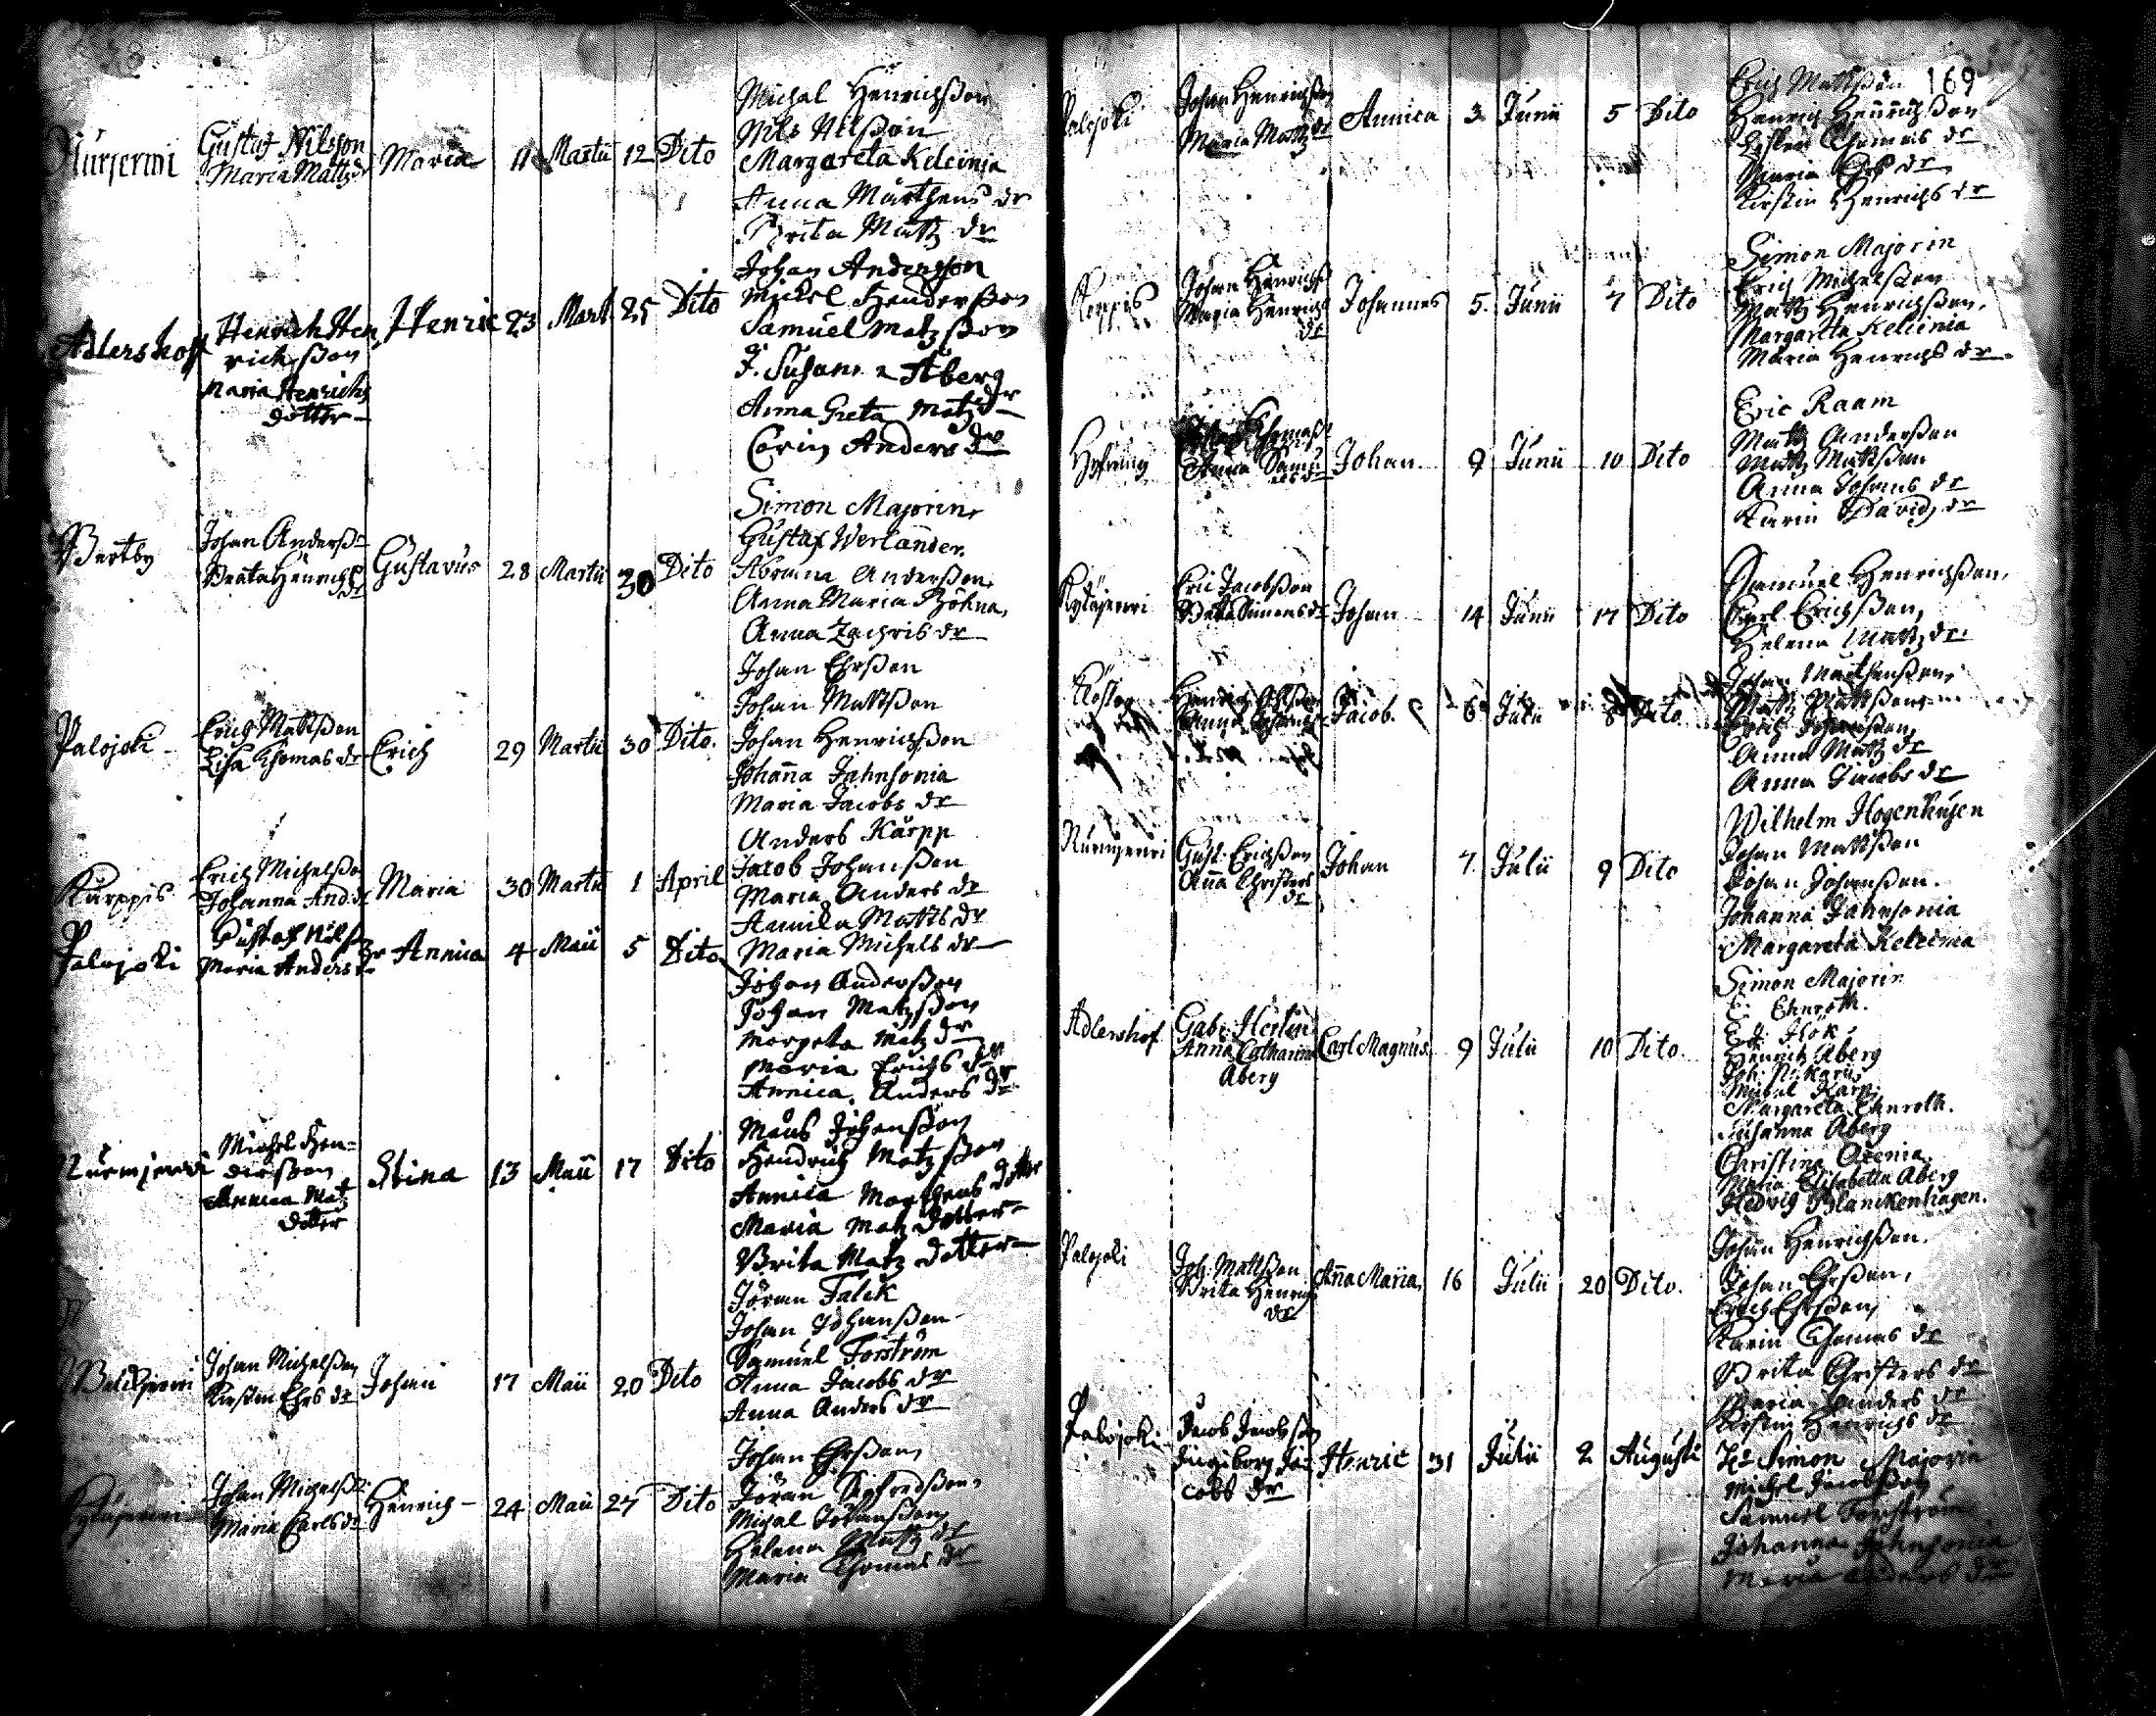 Nurjerwi
Gustaf Nilsson
Maria Mattz dr
Maria 11 Martii 12 Dito
Michal Henrichsson
Nils Nilsson
Margareta Keleinia
Anna Marthens dr
Brita Mattz dr
Adlershoff
Henrich Hen
richsson
Maria Henrichs
dotter
Henric 23 Mart 25 Dito
Johan Andersson
Mickel Hendersson
Samuel Matzsson
J. Susanna Åberg
Anna Greta Matz dr
Carin Anders dr
Pertby
Johan Anderss
Beata Henrichs
dr
Gustavus 28 Martii 30 Dito
Simon Majorin
Gustaf Werlander
Abraham Andersson
Anna Maria Böhna
Anna Zachris dr
Palojoki
Erich Mattsson
Lisa Thomas dr
Erich 29 Martii 30 Dito.
Johan Ehrsson
Johan Mattsson
Johan Henrichsson
Johanna Jahnsonia
Maria Jacobs dr
Karppis
Erich Michelsson
Johanna And. dr
Maria 30 Martii 1 April
Anders Karpp
Jacob Johansson
Maria Anders dr
Annika Matts dr
Maria Michels dr
Palojoki
Gustaf Nils
Maria Anders dr
Annica 4 Maii 5 Dito
Johan Andersson
Johan Matzsson
Margeta Matz dr
Maria Erichs dr
Annica Anders dr
Nurmjerwi
Michel Hen-
dersson
Annica Mat
dotter
Stina 13 Maii 17 Dito
Maus Johansson
Hendrich Matzsson
Annica Marthens dotter
Maria Matz dotter
Brita Matz dotter
Johan Michelsson
Kirstin Ehrs dr
Johan 17 Maii 20 Dito
Jöran Falck
Johan Johansson
Samuel Forström
Anna Jacobs dr
Anna Anders dr
Kytäjerwi
Johan Michelss
Maria Carls dr
Henrich 24 Maii 27 Dito
Johan Ehrsson
Jöran Sigfredsson
Michal Johansson
Helena Mattz dr
Maria Thomas dr
169
Palojoki
Johan Henrichsson
Maria Mattz dr
Annica 3 Junii 5 Dito
Erich Mattsson
Henrich Henrichsson
Thomas dr
Maria dr
Kirstin Henrichs dr
Karppis
Johan Henrichs
Maria Henrichs
dr
Johannes 5. Junii 7 Dito
Simon Majorin
Erich Michelsson
Mattz Henrichsson
Margareta Keleinia
Maria Henrichs dr
Thomass
Anna Samu
els dr
Johan 9 Junii 10 Dito
Eric Raam
Mattz Andersson
Mattz Mattsson
Anna Johans dr
Karin Davids dr
Kytäjerwi
Eric Jacobsson
Beata Simons dr
Johan 14 Junii 17 Dito
Samuel Henrichsson
Carl Erichsson
Helena Mattz dr
Jacob. 6 Julii 8 Dito
Johan Marthensson
Mattz Mattsson
Anna Mattz dr
Anna Jacobs dr
Nurmjerwi
Gust. Erichsson
Anna Christers
dr
Johan 7. Julii 9 Dito
Wilhelm Hogenhusen
Johan Mattsson
Johan Johansson.
Johanna Jahnsonia
Margareta Keleinia
Adlershof
Gabr. Herlin
Anna Catharina
Åberg
Carl Magnus. 9 Julii 10 Dito.
Simon Majorin
C. Ehnroth.
Henrich Åberg
Michel Karp
Margareta Ehnroth.
Susanna Åberg
Christina Arenia
Maria Elisabetha Åberg
Hedvig Blanckenhagen.
Palojoki
Joh. Mattsson
Brita Henrichs
dr
Anna Maria, 16 Julii 20 Dito.
Johan Henrichsson.
Johan Ehrsson,
Erich Ehrsson,
Karin Thomas dr
Brita Christers dr
Maria Anders dr
Kirstin Henrichs dr
Palojoki
Jacob Jacobsson
Ingeborg Ja-
cobs dr
Henric 31 Julii 2 Augusti
Hr Simon Majorin
Michel Jacobsson
Samuel Forström
Johanna Jahnsonia
Maria Anders dr